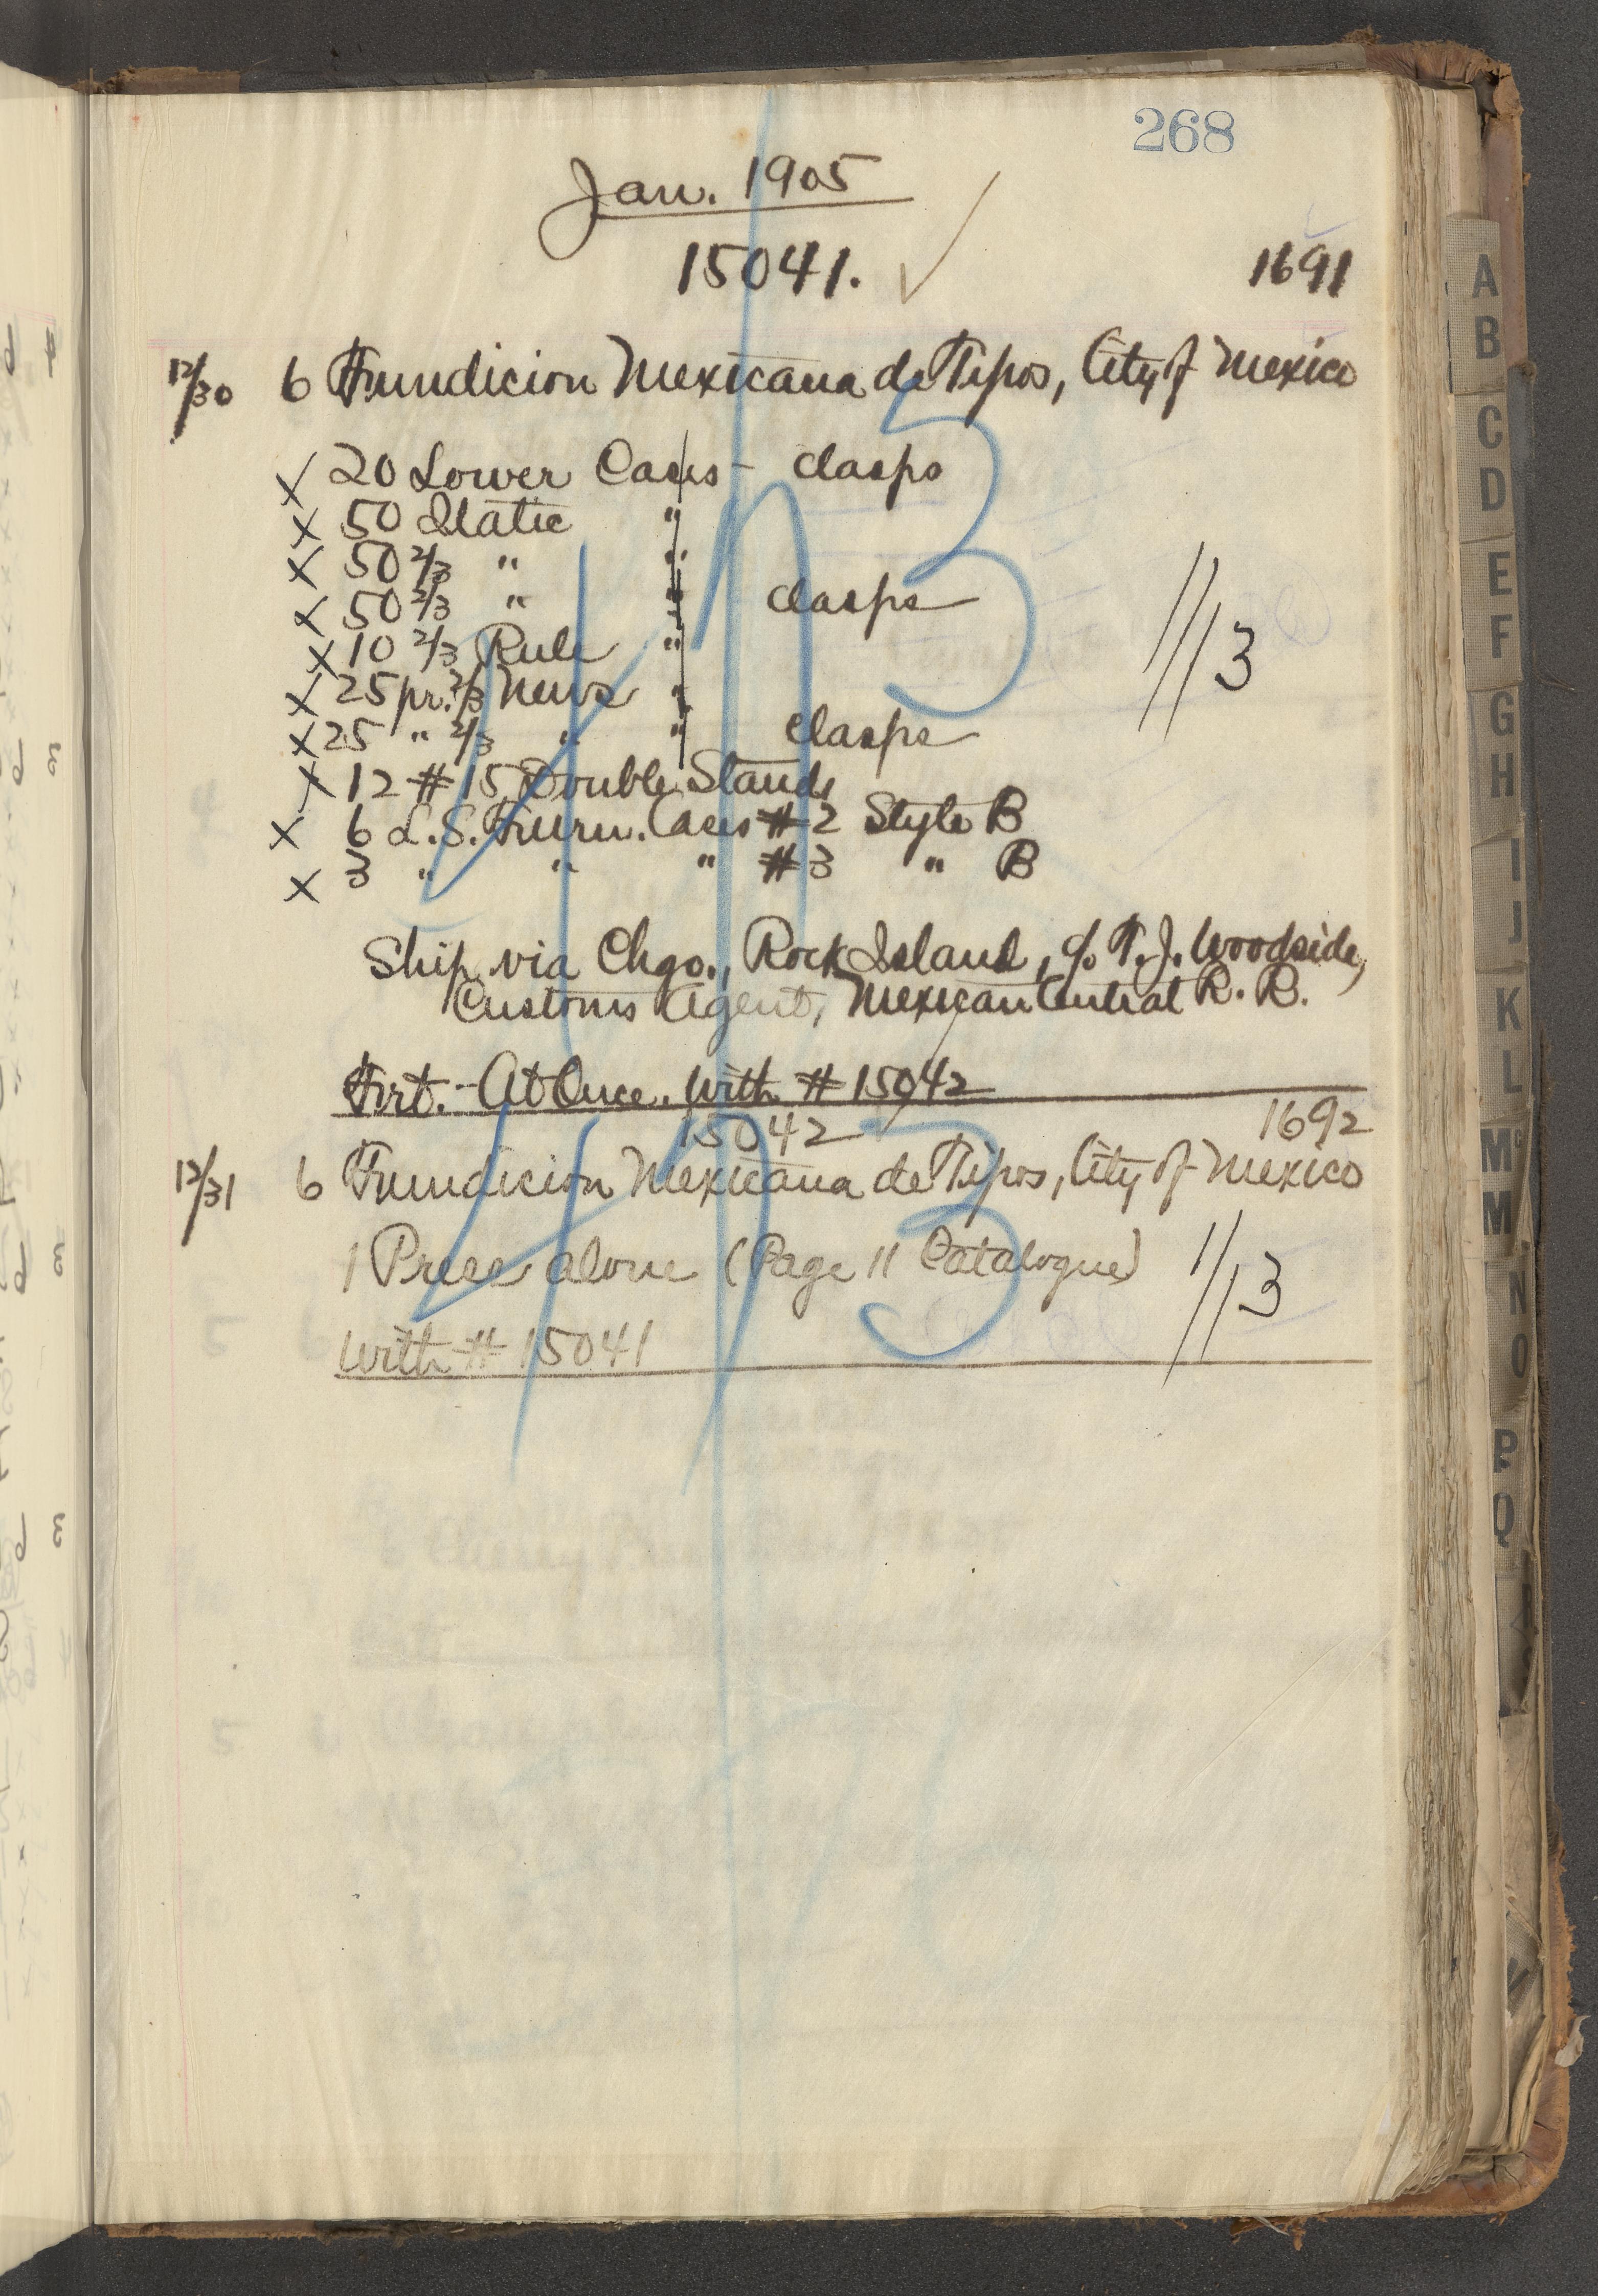 268
Jan. 1905
15041. ✓ 1691
12/30 6 Fundicion Mexicana de Tipos, City of Mexico
x 20 Lower Cases - clasps
x 50 Italic "
x 50 2/3 " "
x 50 2/3 " " clasps
x 10 2/3 Rule "
x 25 pr. 2/3 News "
x 25 " 2/3 " " clasps
x 12 # 15 Double Stands
x 6 L.S. Furn. Cases # 2 Style B
x 3 " " " # 3 " B
1/13
4/13
Ship via Chgo., Rock Island, c/o T.J. Woodside,
Customs Agent, Mexican Central R. R.
Frt. - At Once. With # 15042
15042 ✓ 1692
12/31 6 Fundicion Mexicana de Tipos, City of Mexico
1 Press alone (Page 11 Catalogue)
1/13
With # 15041
A
B
C
D
E
F
G
H
I
J
K
L
Mc
M
N
O
P
Q